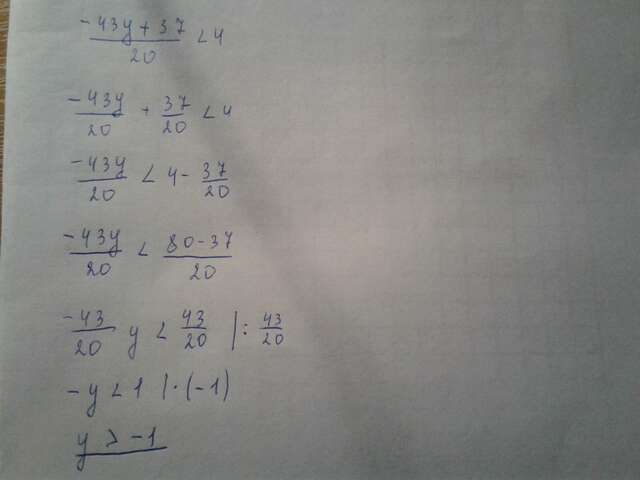 (-43y + 37)/20 < 4
-43y/20 + 37/20 < 4
-43y/20 < 4 - 37/20
-43y/20 < (80 - 37)/20
-43/20 y < 43/20 | : 43/20
-y < 1 | · (-1)
y > -1